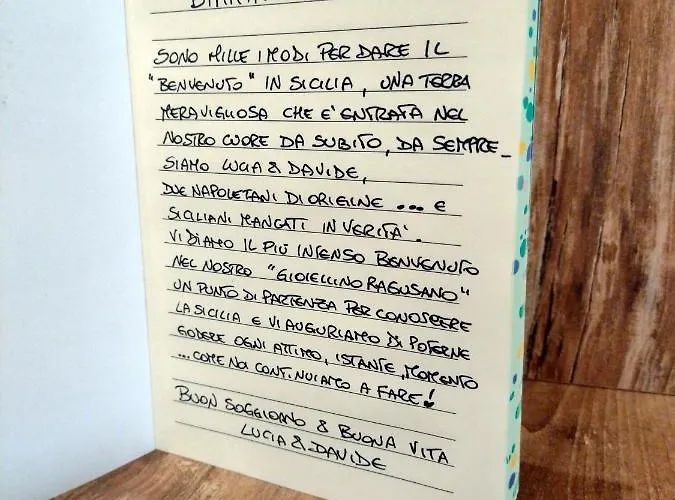 SONO MILLE I MODI PER DARE IL
"BENVENUTO" IN SICILIA, UNA TERRA
MERAVIGLIOSA CHE E' ENTRATA NEL
NOSTRO CUORE DA SUBITO, DA SEMPRE_
SIAMO LUCIA & DAVIDE,
DUE NAPOLETANI DI ORIGINE ... E
SICILIANI MANCATI IN VERITA'.
VI DIAMO IL PIÙ INTENSO BENVENUTO
NEL NOSTRO "GIOIELLINO RAGUSANO"
UN PUNTO DI PARTENZA PER CONOSCERE
LA SICILIA E VI AUGURIAMO DI POTERNE
GODERE OGNI ATTIMO, ISTANTE, MOMENTO
...COME NOI CONTINUIAMO A FARE!
BUON SOGGIORNO & BUONA VITA
LUCIA & DAVIDE